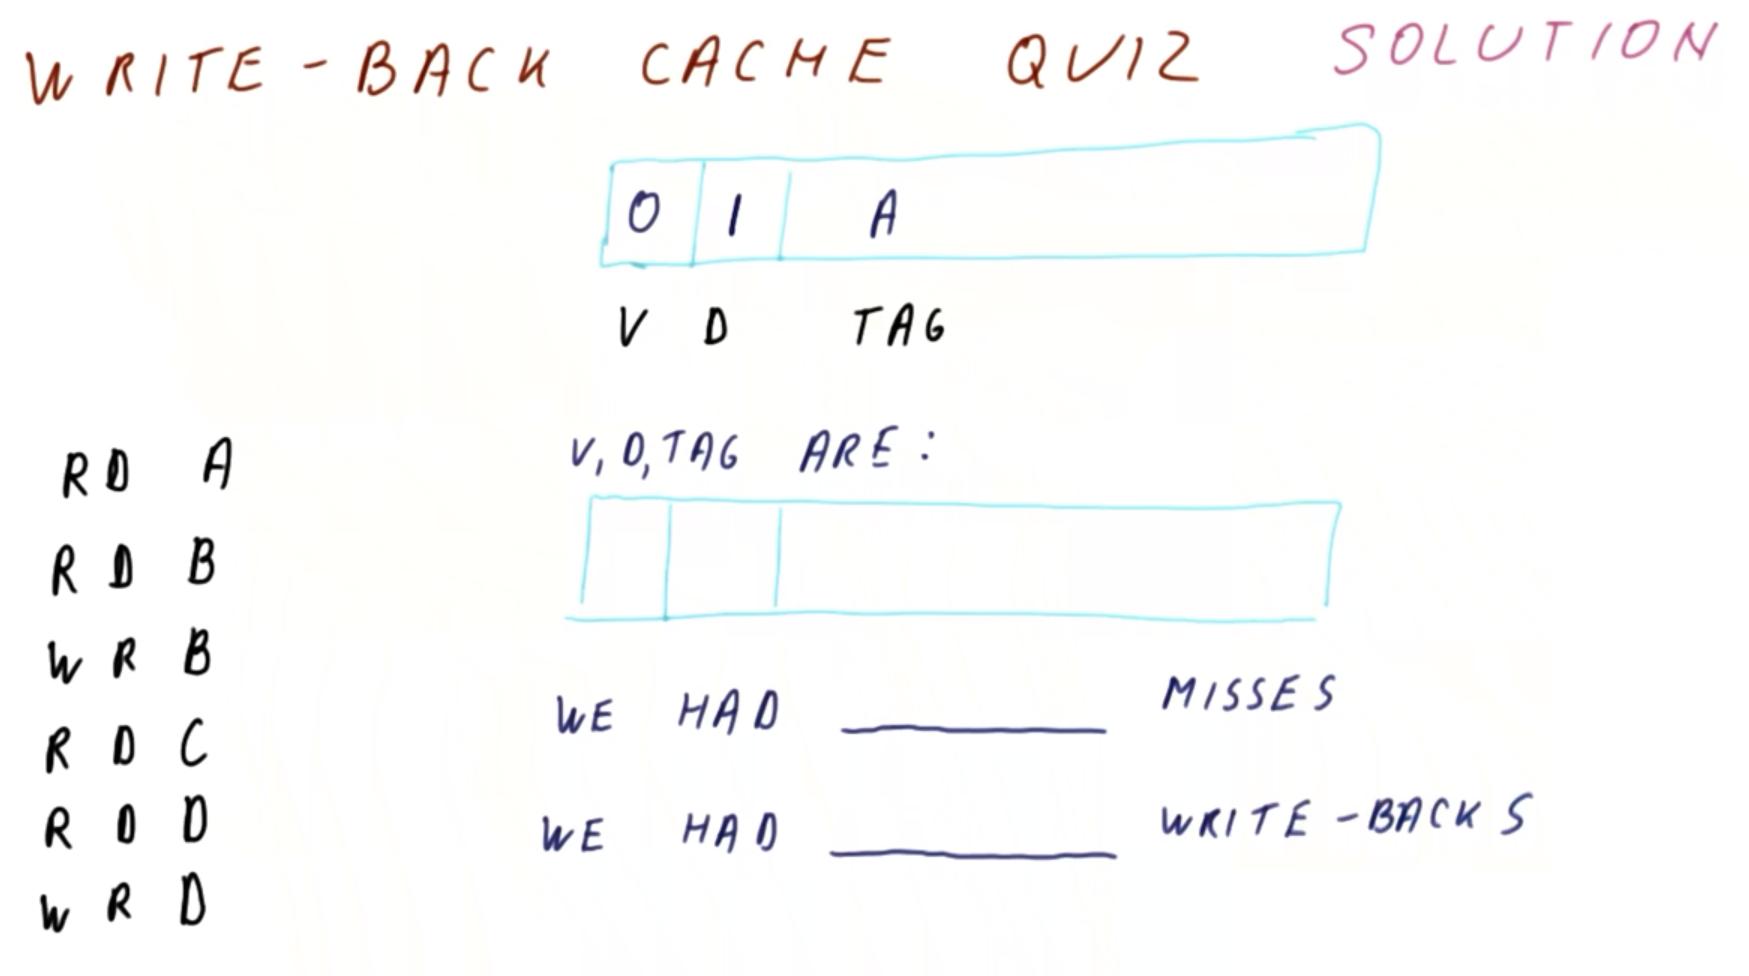 WRITE-BACK CACHE QUIZ SOLUTION
0 1 A
V D TAG
V, D, TAG ARE:
RD A
RD B
WR B
RD C
RD D
WR D
WE HAD ________ MISSES
WE HAD ________ WRITE-BACKS